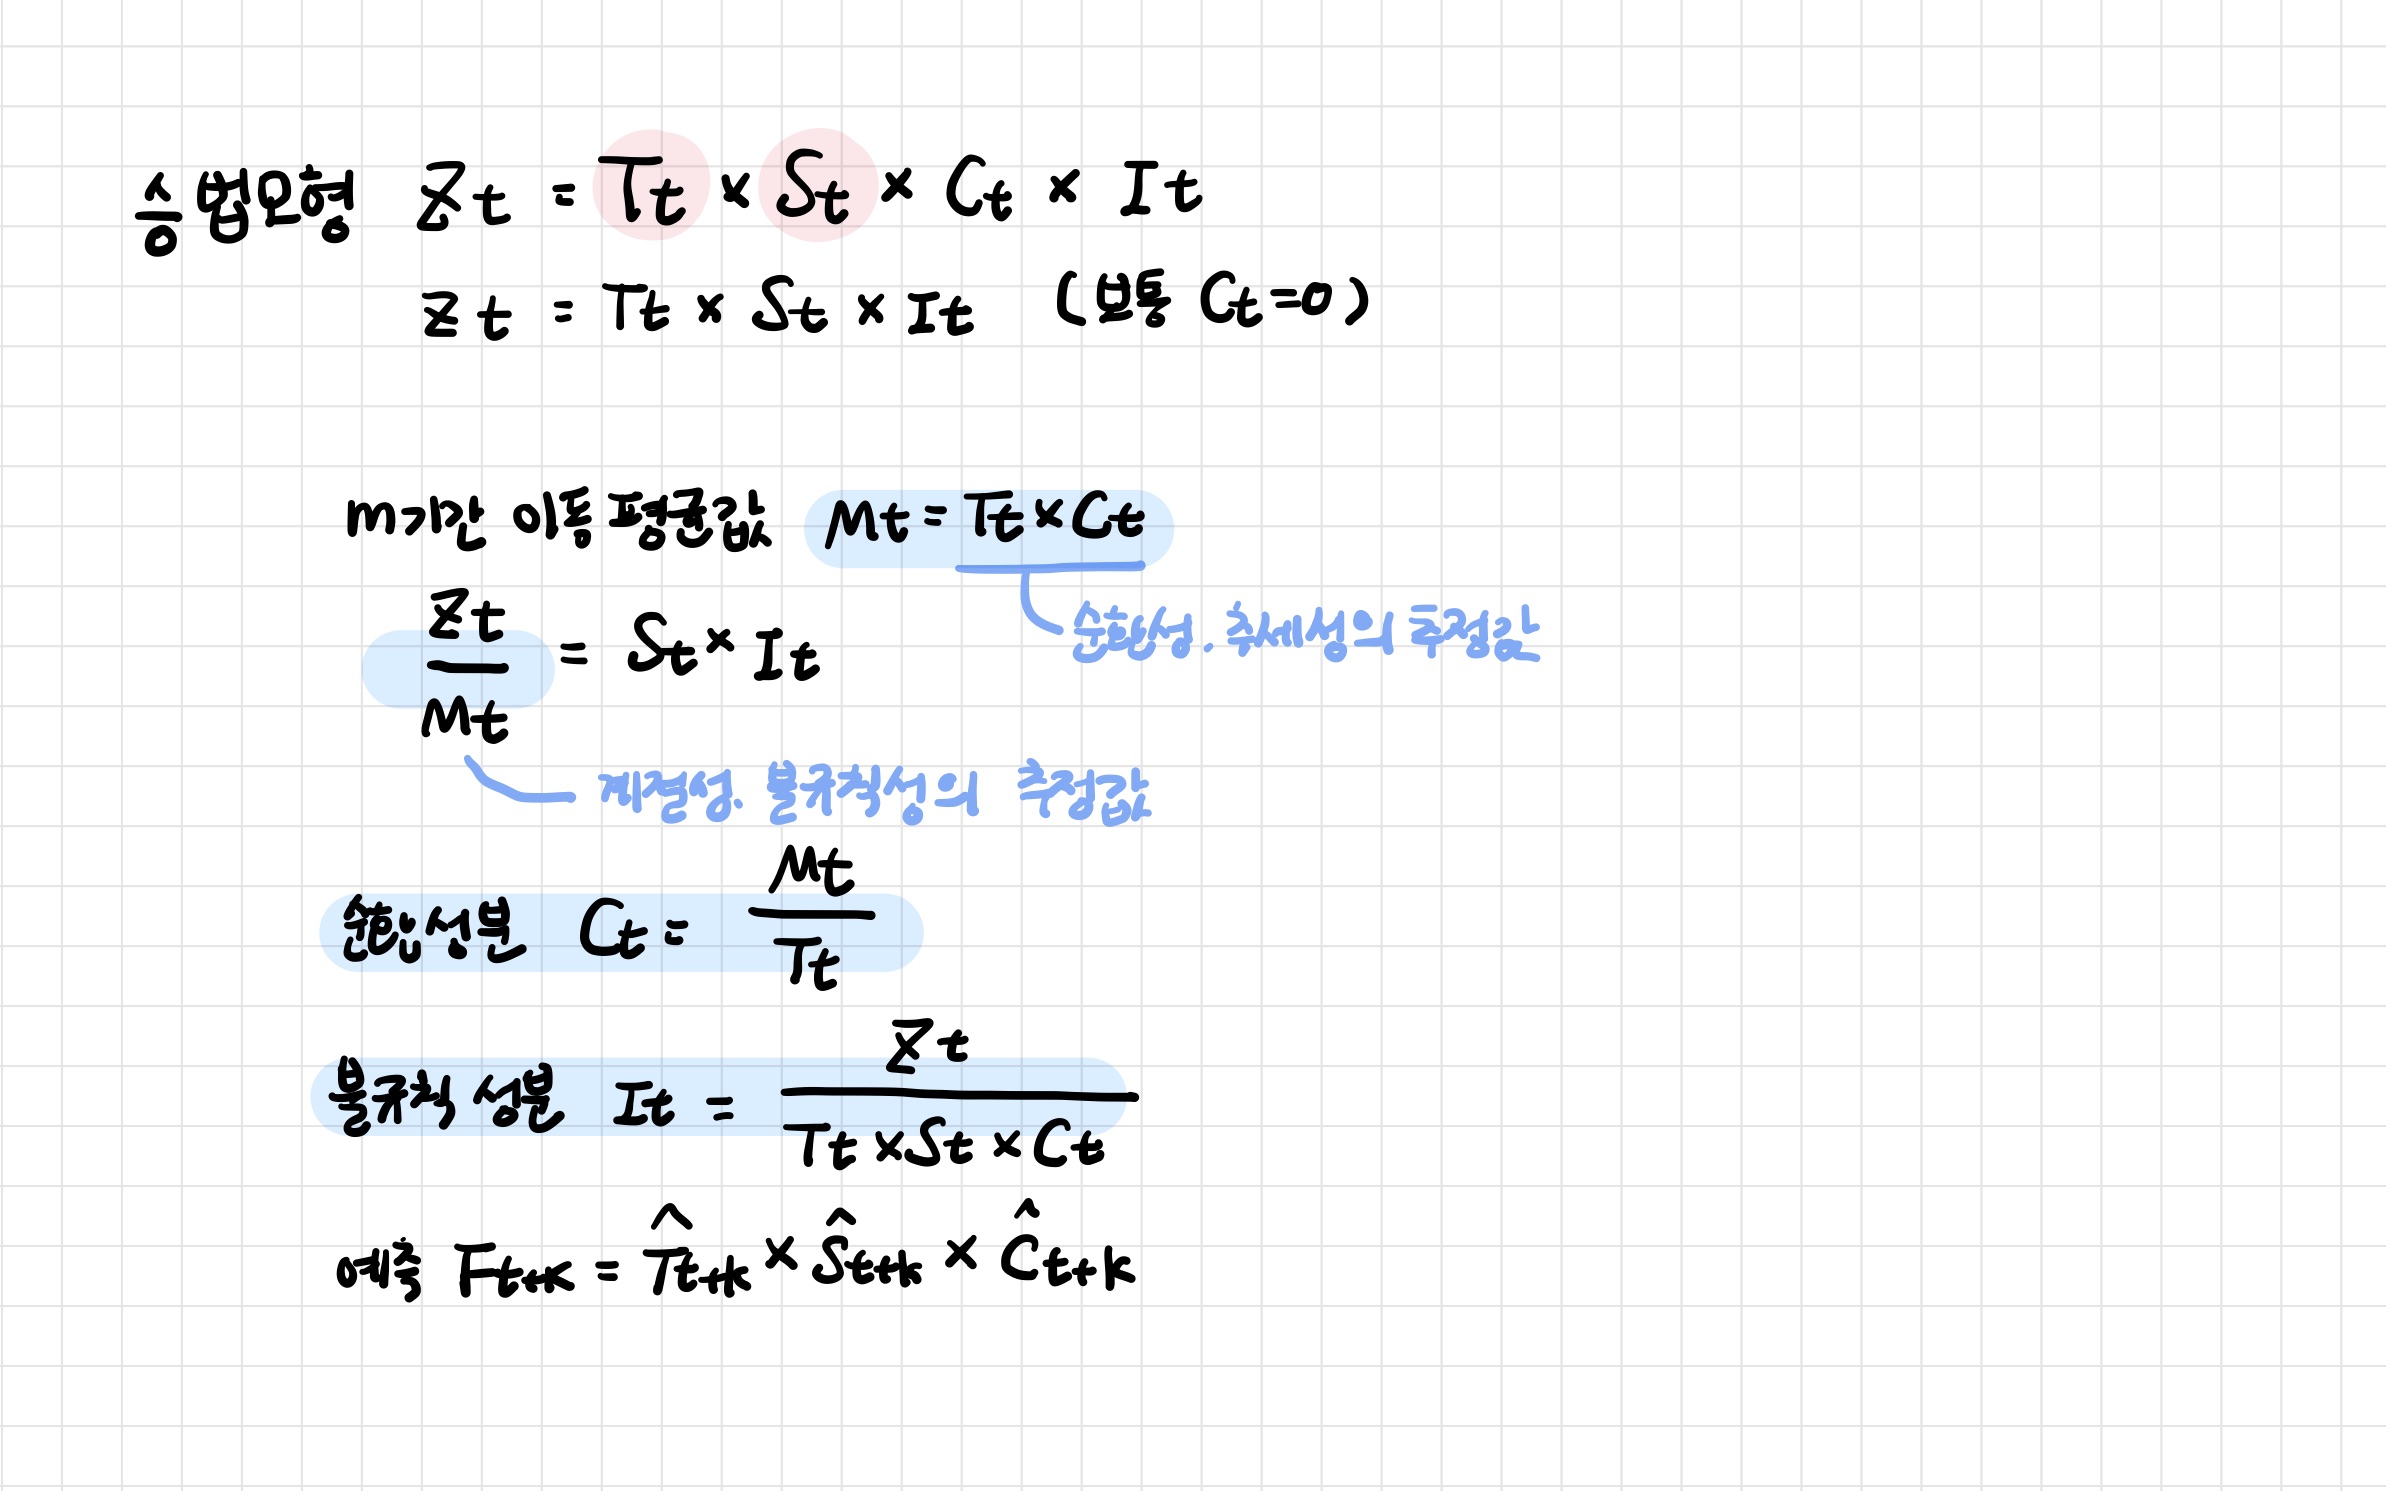 승법모형 Zt = Tt × St × Ct × It
Zt = Tt × St × It (보통 Ct=0)
m기간 이동평균값 Mt = Tt×Ct
순환성. 추세성의 추정값
Zt
Mt
= St × It
계절성. 불규칙성의 추정값
순환성분 Ct =
Mt
Tt
불규칙 성분 It =
Zt
Tt × St × Ct
예측 Ft+k = T̂t+k × Ŝt+k × Ĉt+k